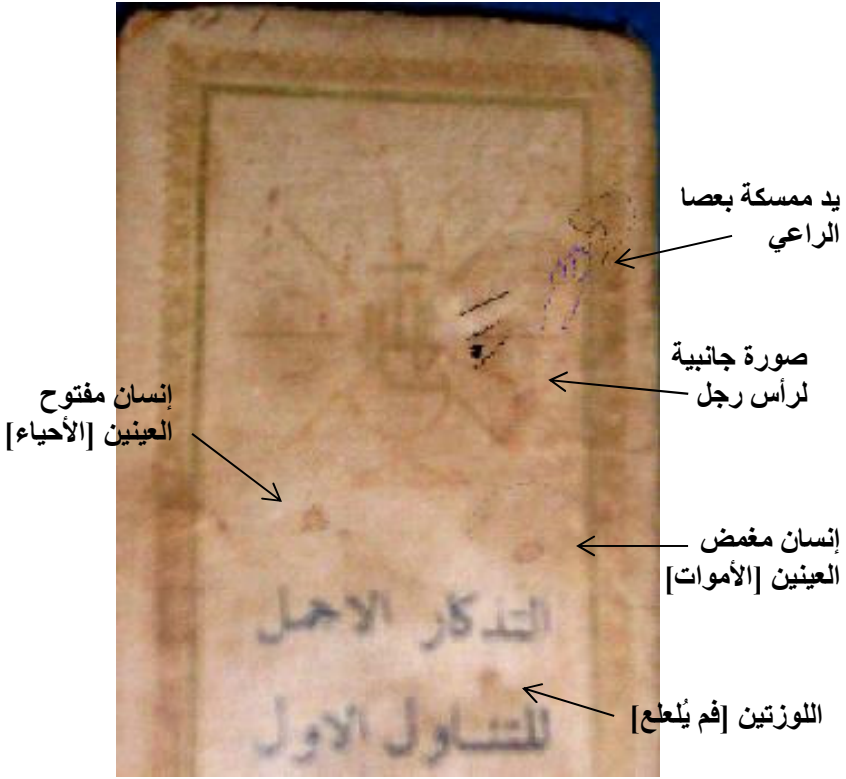 يد ممسكة بعصا
الراعي
صورة جانبية
لرأس رجل
إنسان مفتوح
العينين [الأحياء]
إنسان مغمض
العينين [الأموات]
التذكار الاجمل
اللوزتين [فم يُلعلع]
للتناول الاول